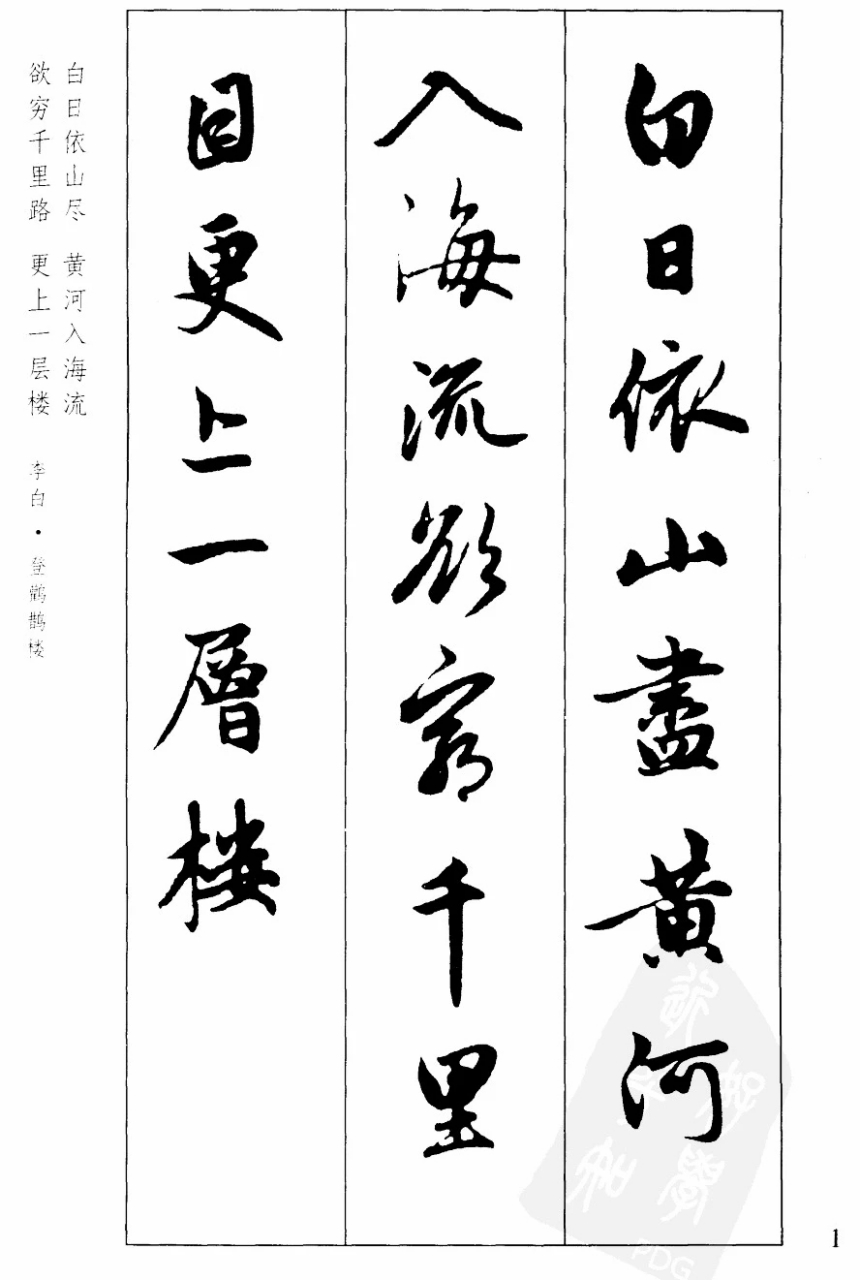 白日依山盡黃河
入海流欲窮千里
目更上一層樓
白日依山尽 黄河入海流
欲穷千里路 更上一层楼
李白·登鹳鹊楼
1
PDG